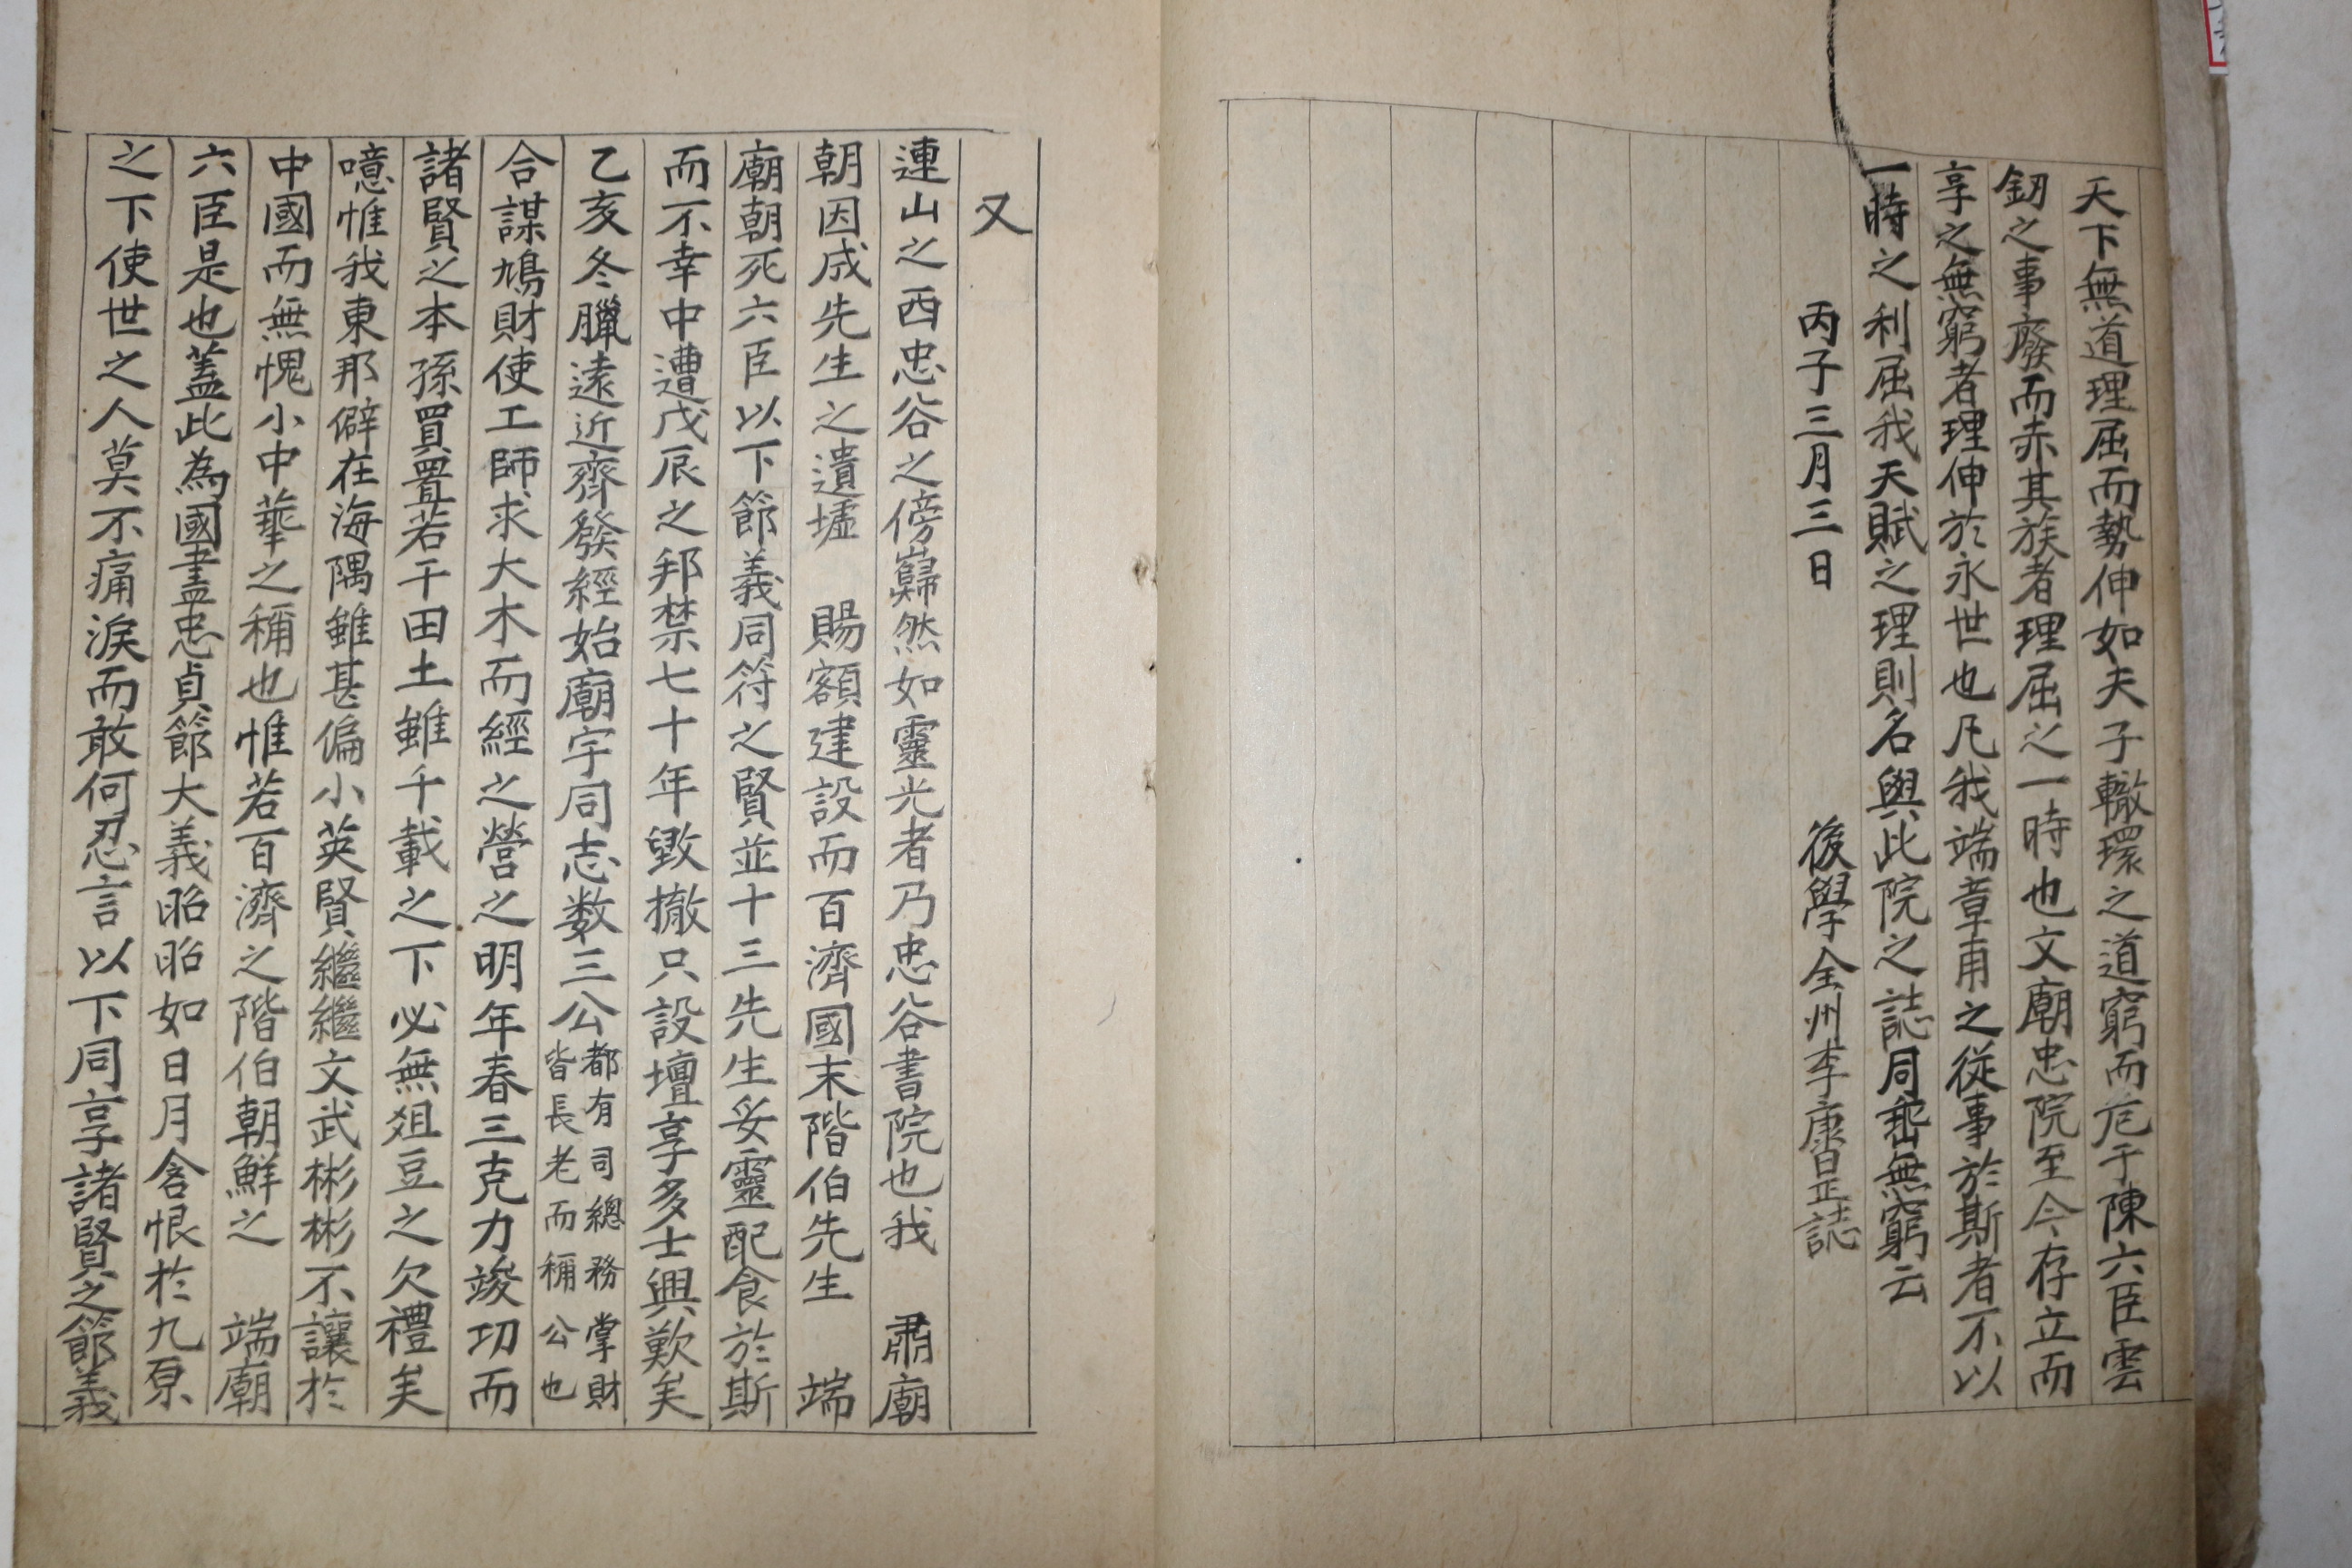 天下無道理屈而勢伸如夫子轍環之道窮而厄于陳六臣雲
釰之事廢而赤其族者理屈之一時也文廟忠院至今存立而
享之無窮者理伸於永世也凡我端章甫之從事於斯者不以
一時之利屈我天賦之理則名與此院之誌同壽無窮云
丙子三月三日 後學全州李康㫒誌
又
連山之西忠谷之傍巋然如靈光者乃忠谷書院也我 肅廟
朝因成先生之遺墟 賜額建設而百濟國末階伯先生 端
廟朝死六臣以下節義同符之賢並十三先生妥靈配食於斯
而不幸中遭戊辰之邦禁七十年毀撤只設壇享多士興歎矣
乙亥冬臘遠近齊發經始廟宇同志数三公都有司總務掌財皆長老而稱公也
合謀鳩財使工師求大木而經之營之明年春三克力竣功而
諸賢之本孫買置若干田土雖千載之下必無俎豆之欠禮矣
噫惟我東那僻在海隅雖甚偏小英賢繼繼文武彬彬不讓於
中國而無愧小中華之稱也惟若百濟之階伯朝鮮之 端廟
六臣是也蓋此為國盡忠貞節大義昭昭如日月含恨於九原
之下使世之人莫不痛淚而敢何忍言以下同享諸賢之節義